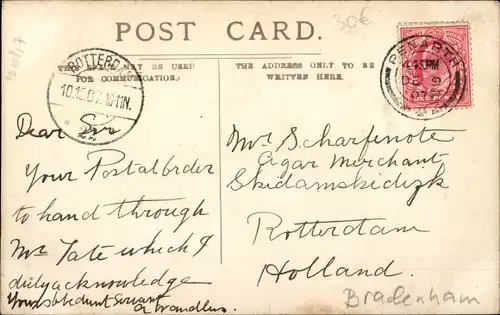 POST CARD.
30€
THE SPACE MAY BE USED
FOR COMMUNICATION.
THE ADDRESS ONLY TO BE
WRITTEN HERE.
PENARTH
4.45PM
DE 9
07
ROTTERDAM
10.12.07. 10-11N.
Dear Sir
Your Postal Order
to hand through
Mr Tate which I
duly acknowledge
Your obedient Servant
Mr Scharfenote
Cigar Merchant
Rotterdam
Holland.
Bradenham